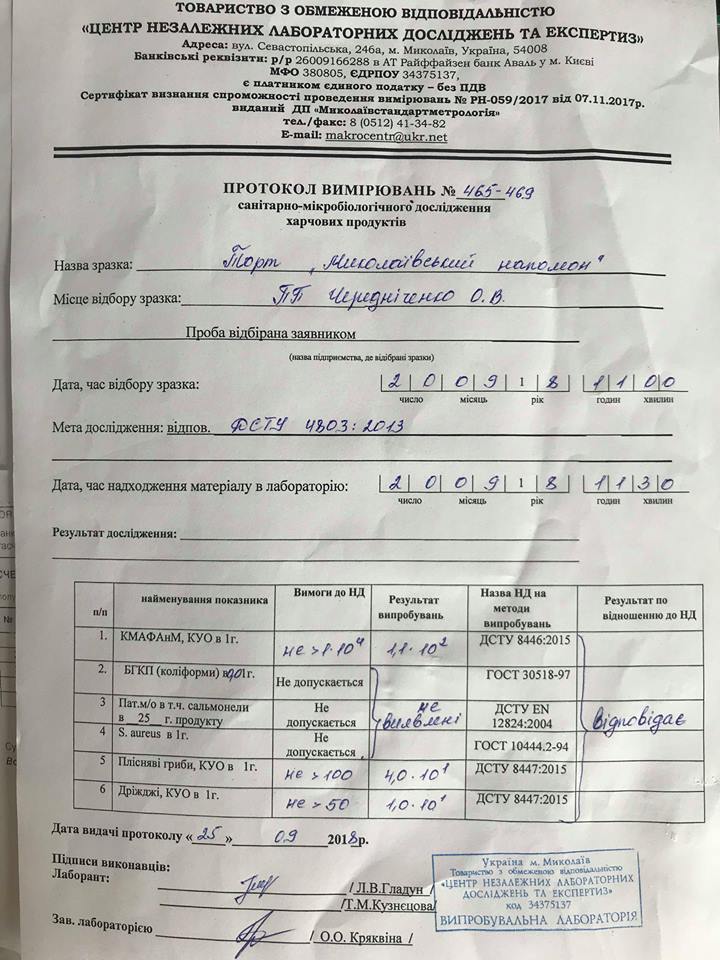 ТОВАРИСТВО З ОБМЕЖЕНОЮ ВІДПОВІДАЛЬНІСТЮ
«ЦЕНТР НЕЗАЛЕЖНИХ ЛАБОРАТОРНИХ ДОСЛІДЖЕНЬ ТА ЕКСПЕРТИЗ»
Адреса: вул. Севастопільська, 246а, м. Миколаїв, Україна, 54008
Банківські реквізити: р/р 26009166288 в АТ Райффайзен банк Аваль у м. Києві
МФО 380805, ЄДРПОУ 34375137,
є платником єдиного податку – без ПДВ
Сертифікат визнання спроможності проведення вимірювань № РН-059/2017 від 07.11.2017р.
виданий ДП «Миколаївстандартметрологія»
тел./факс: 8 (0512) 41-34-82
E-mail: makrocentr@ukr.net
ПРОТОКОЛ ВИМІРЮВАНЬ № 465-469
санітарно-мікробіологічного дослідження
харчових продуктів
Назва зразка: Торт „Миколаївський наполюн"
Місце відбору зразка: ПП Чередніченко О.В.
Проба відбірана заявником
(назва підприємства, де відібрані зразки)
Дата, час відбору зразка: 2 0 0 9 1 8 1 1 0 0
число місяць рік годин хвилин
Мета дослідження: відпов. ДСТУ 4803:2013
Дата, час надходження матеріалу в лабораторію: 2 0 0 9 1 8 1 1 3 0
число місяць рік годин хвилин
Результат дослідження:
п/п найменування показника Вимоги до НД Результат випробувань Назва НД на методи випробувань Результат по відношенню до НД
1. КМАФАнМ, КУО в 1г. не > 1·10⁴ 1,1·10² ДСТУ 8446:2015
2. БГКП (коліформи) в 0,01г. Не допускається ГОСТ 30518-97
3 Пат.м/о в т.ч. сальмонели в 25 г. продукту Не допускається не виявлені ДСТУ EN 12824:2004 відповідає
4 S. aureus в 1г. Не допускається ГОСТ 10444.2-94
5 Плісняві гриби, КУО в 1г. не > 100 4,0·10¹ ДСТУ 8447:2015
6 Дріжджі, КУО в 1г. не > 50 1,0·10¹ ДСТУ 8447:2015
Дата видачі протоколу «25» 09 2018р.
Підписи виконавців:
Лаборант: / Л.В.Гладун /
/Т.М.Кузнєцова/
Зав. лабораторією / О.О. Кряквіна /
Україна м. Миколаїв
Товариство з обмеженою відповідальністю
«ЦЕНТР НЕЗАЛЕЖНИХ ЛАБОРАТОРНИХ
ДОСЛІДЖЕНЬ ТА ЕКСПЕРТИЗ»
код 34375137
ВИПРОБУВАЛЬНА ЛАБОРАТОРІЯ